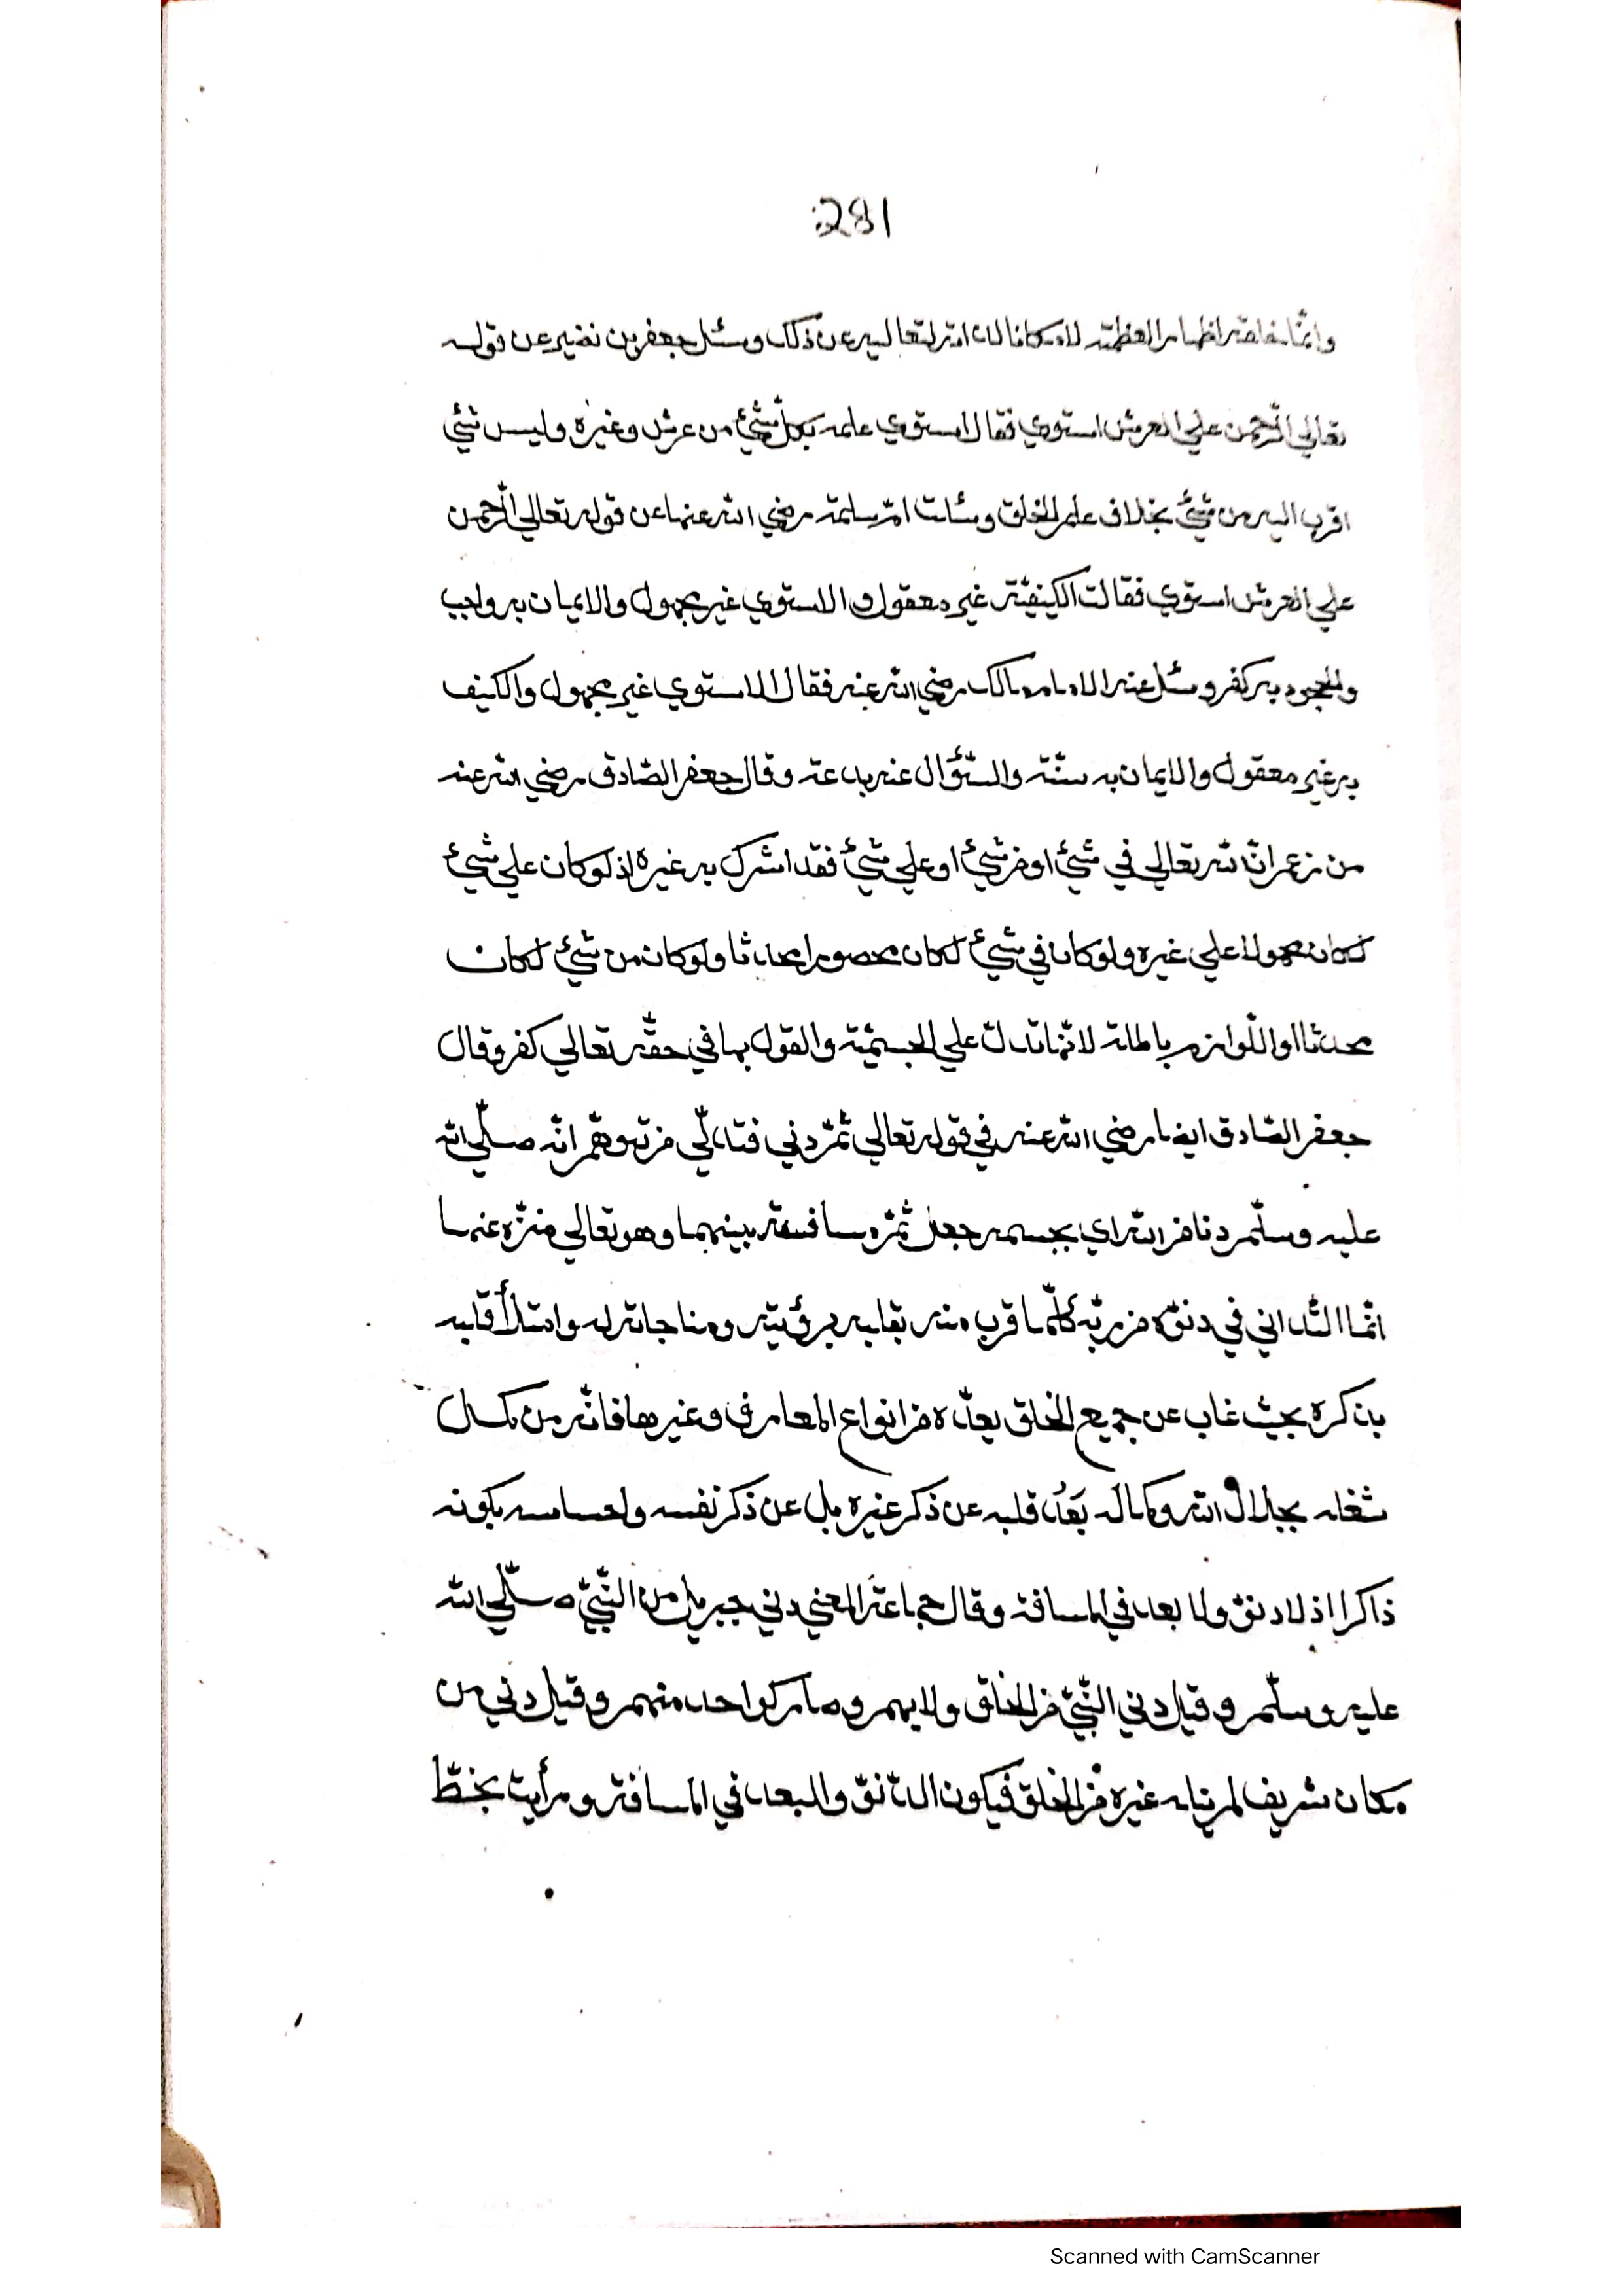 281:
وانّما خلقه اظهارا لعظمته لا مكانا لذاته لتعاليه عن ذلك وسئل جعفر بن نضير عن قوله
تعالي الرّحمن علي العرش استوي فقال استوي علمه بكلّ شئٍ من عرش وغيره وليس شئي
اقرب اليه من شئٍ بخلاف علم الخلق وسئلت امّ سلمة رضي الله عنها عن قوله تعالي الرّحمن
علي العرش استوي فقالت الكيفيّة غير معقول والاستوي غير مجهول والايمان به واجب
والجحود به كفر وسئل عنه الامام مالك رضي الله عنه فقال الاستوي غير مجهول والكيف
به غير معقول والايمان به سنّة والسّؤال عنه بدعة وقال جعفر الصّادق رضي الله عنه
من زعم انّ الله تعالي في شيئٍ او من شيئٍ او علي شيئٍ فقد اشرك به غيره اذ لو كان علي شيئٍ
لكان محمولا علي غيره ولو كان في شيئٍ لكان محصورا محادثا ولو كان من شيئٍ لكان
محدثا واللّوازم باطلة لانّها تدلّ علي الجسميّة والقول بها في حقّه تعالي كفر وقال
جعفر الصّادق ايضا رضي الله عنه في قوله تعالي ثمّ دني فتدلّي من توهّم انّه صلّي الله
عليه وسلّم دنا من الله اي بجسمه جعل ثمّ مسافة بينهما وهو تعالي منزّه عنها
انّما التّداني في دنوّه من ربّه كلّما قرب منه بقلبه برؤيته ومناجاته له وامتلأ قلبه
بذكره بحيث غاب عن جميع الخلق بعدّه من انواع المعارف وغيرها فانّه من كمال
شغله بجلال الله وكماله بَعُد قلبه عن ذكر غيره بل عن ذكر نفسه واحساسه بكونه
ذاكرا اذ لا دنوّ ولا بعد في المسافة وقال جماعة المعني دني جبريل من النّبيّ صلّي الله
عليه وسلّم وقيل دني النّبيّ من الخلق ولا يهم وصار كواحد منهم وقيل دني من
مكان شريف لم ينله غيره من الخلق فيكون الدّنوّ والبعد في المسافة ورأيت بخطّ
Scanned with CamScanner